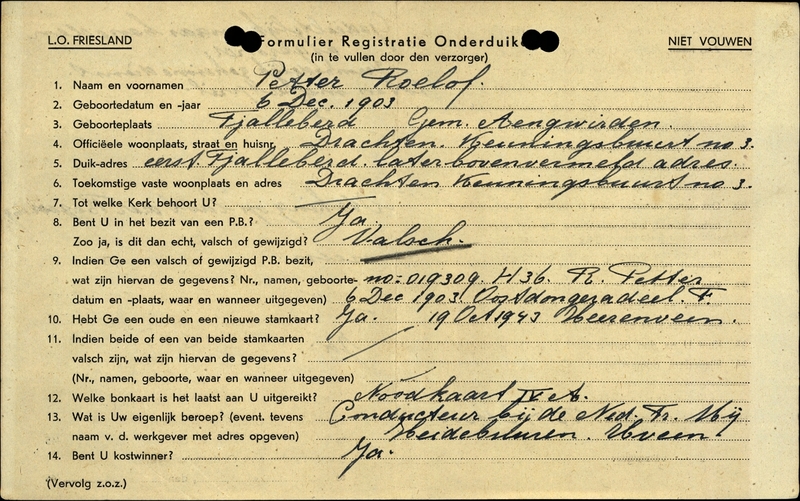 L.O. FRIESLAND
Formulier Registratie Onderduik
NIET VOUWEN
(in te vullen door den verzorger)
1. Naam en voornamen Petter Roelof.
2. Geboortedatum en -jaar 6 Dec. 1903
3. Geboorteplaats Tjalleberd Gem. Aengwirden.
4. Officiëele woonplaats, straat en huisnr. Drachten. Keuningsbuurt no 3.
5. Duik-adres eerst Tjalleberd later bovenvermeld adres.
6. Toekomstige vaste woonplaats en adres Drachten Keuningsbuurt no 3.
7. Tot welke Kerk behoort U?
8. Bent U in het bezit van een P.B.? Ja
Zoo ja, is dit dan echt, valsch of gewijzigd? Valsch.
9. Indien Ge een valsch of gewijzigd P.B. bezit,
wat zijn hiervan de gegevens? Nr., namen, geboorte- no: 019309 H36. R. Petter
datum en -plaats, waar en wanneer uitgegeven) 6 Dec 1903. Oostdongeradeel. F.
10. Hebt Ge een oude en een nieuwe stamkaart? Ja. 19 Oct 1943 Heerenveen.
11. Indien beide of een van beide stamkaarten
valsch zijn, wat zijn hiervan de gegevens?
(Nr., namen, geboorte, waar en wanneer uitgegeven)
12. Welke bonkaart is het laatst aan U uitgereikt? Noodkaart IV A.
13. Wat is Uw eigenlijk beroep? (event. tevens Conducteur bij de Ned. Tr. Mij
naam v. d. werkgever met adres opgeven) Heideburen. Hveen.
14. Bent U kostwinner? Ja.
(Vervolg z.o.z.)